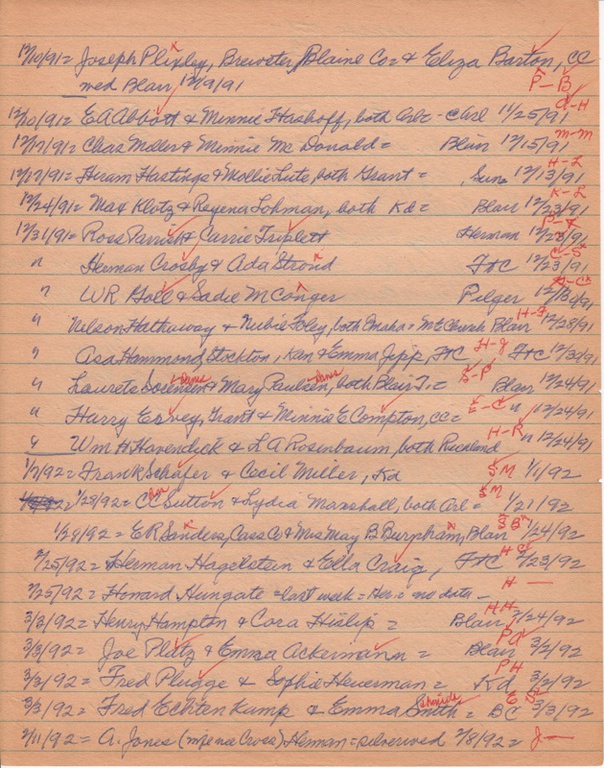 12/10/91 = Joseph Plixley, Brewster, Blaine Co = & Eliza Barton, CC
med Blair, 12/9/91 P - B
12/10/91 = EA Abbott & Minnie Hashoff, both Arl = Arl 11/25/91 A-H
12/17/91 = Chas Moller & Minnie McDonald = Blair 12/15/91 m-m
12/17/91 = Hiram Hastings & Mollie Lute, both Grant = 12/13/91 H-L
12/24/91 = Max Klotz & Regena Lohman, both Kd = Blair 12/23/91 K-L
12/31/91 = Ross Parrish & Carrie Triplett Herman 12/23/91 P-T
" Herman Crosby & Ada Strond FtC 12/23/91 C-S
" WR Goll & Sadie McConger Pilger 12/ /91 G-C
" Nelson Hathaway & Nubie Foley, both Omaha = ME Church Blair 12/28/91 H-F
" Asa Hammond, Stockton, Kan & Emma Jipp, FtC, FtC 12/30/91 H-J
" Laurets Sorensen & Mary Paulsen, both Blair T. = Blair 12/24/91 S-P
" Harry Esvey, Grant & Minnie E Compton, CC = " 12/24/91 E-C
" Wm H Havendick & LA Rosenbaum, both Richland " 12/24/91 H-R
1/7/92 = Frank Schafer & Cecil Miller, Kd 1/1/92 SM
1/28/92 = CC Sutton & Lydia Marshall, both Arl = 1/21/92 SM
1/28/92 = ER Sanders, Cass Co & Mrs May B Burpham, Blair 1/24/92 SB
2/25/92 = Herman Hagelstein & Ella Craig, FtC 2/23/92 HC
2/25/92 = Howard Hungate = last week = Her. = no data - H —
3/3/92 = Henry Hampton & Cora Hislip = Blair 2/24/92 HH
3/3/92 = Joe Platz & Emma Ackermann = Blair 3/2/92 PA
3/3/92 = Fred Plugge & Sophia Heuerman = Kd 3/2/92 PH
3/3/92 = Fred Echtenkamp & Emma Smith = BC 3/3/92 ES
Schmidt
2/11/92 = A. Jones (  Cross) Herman = silverwed 2/8/92 = J —